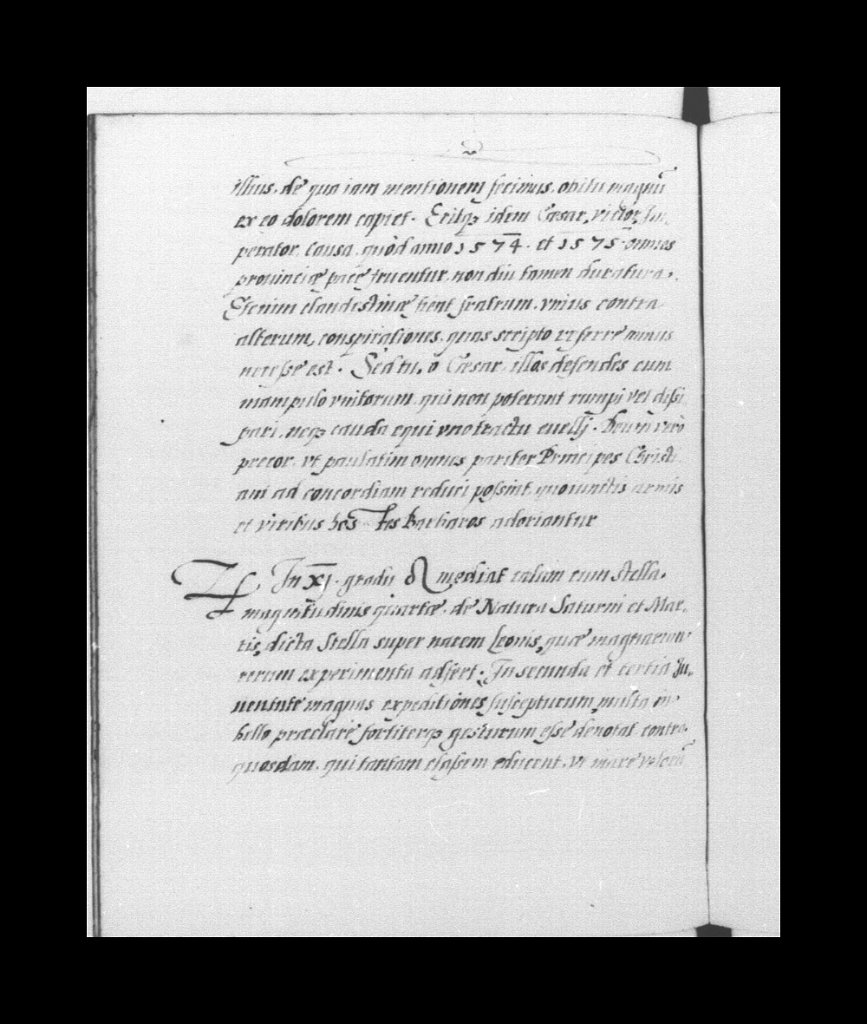 illius, de quo iam mentionem fecimus, obitu magnū
ex eo dolorem capiet. Eritq; idem Cæsar, victor, Im-
perator, causa, quòd anno 1574. et 1575 omnes
prouinciæ pace fruentur, non diu tamen duratura.
Etenim clandestinæ fient fratrum, vnius contra
alterum, conspirationes, quas scripto referre minus
necesse est. Sed tu, o Cæsar, illos defendes cum
manipulo vnitorum, qui non poterunt rumpi vel dissi
pari, neq; cauda equi vno tractu euelli. Deum vero
precor, vt paulatim omnes pariter Principes Christi
ani ad concordiam reduci possint, quo iunctis armis
et viribus hostes barbaros adoriantur
♃ In XI. gradu ♌ mediat cælum cum Stella
magnitudinis quartæ, de Natura Saturni et Mar-
tis, dicta Stella super narem Leonis, quæ magnarum
rerum experimenta adfert. In secunda et tertia Iu-
uentute magnas expeditiones suscepturum, multa in
bello præclarè fortiterq; gesturum esse denotat contra
quosdam, qui tantam classem educent, vt mare